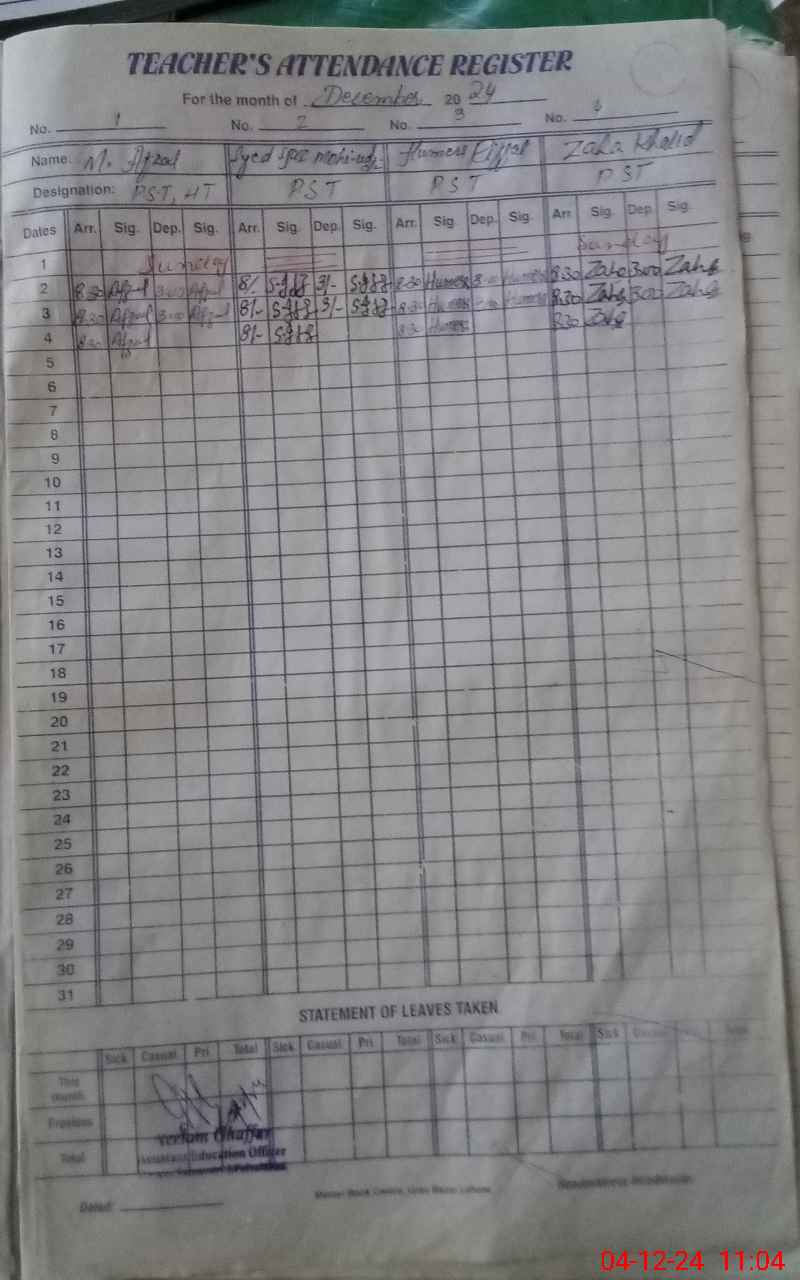 TEACHER'S ATTENDANCE REGISTER
For the month of December 2024
No. 1 No. 2 No. 3 No. 4
Name. M. Afzal Syed Humera Zaha Khalid
Designation: PST, HT PST PST PST
Dates Arr. Sig. Dep. Sig. Arr. Sig. Dep. Sig. Arr. Sig. Dep. Sig. Arr. Sig. Dep. Sig.
1 Sunday Sunday
2 8.30 Afzal 3.00 Afzal 8/- 3/- 8.30 Humera Humera 8.30 Zaha 3.00 Zaha
3 8.30 Afzal 3.00 Afzal 8/- 3/- 8.30 Humera Humera 8.30 Zaha 3.00 Zaha
4 8.30 Afzal 8/- 8.30 Humera 8.30 Zaha
5
6
7
8
9
10
11
12
13
14
15
16
17
18
19
20
21
22
23
24
25
26
27
28
29
30
31
STATEMENT OF LEAVES TAKEN
Sick Casual Pri. Total Sick Casual Pri. Total Sick Casual Pri. Total Sick Casual Total
This month
Previous
Total
Ghaffar
Assistant Education Officer
Dated:
04-12-24 11:04